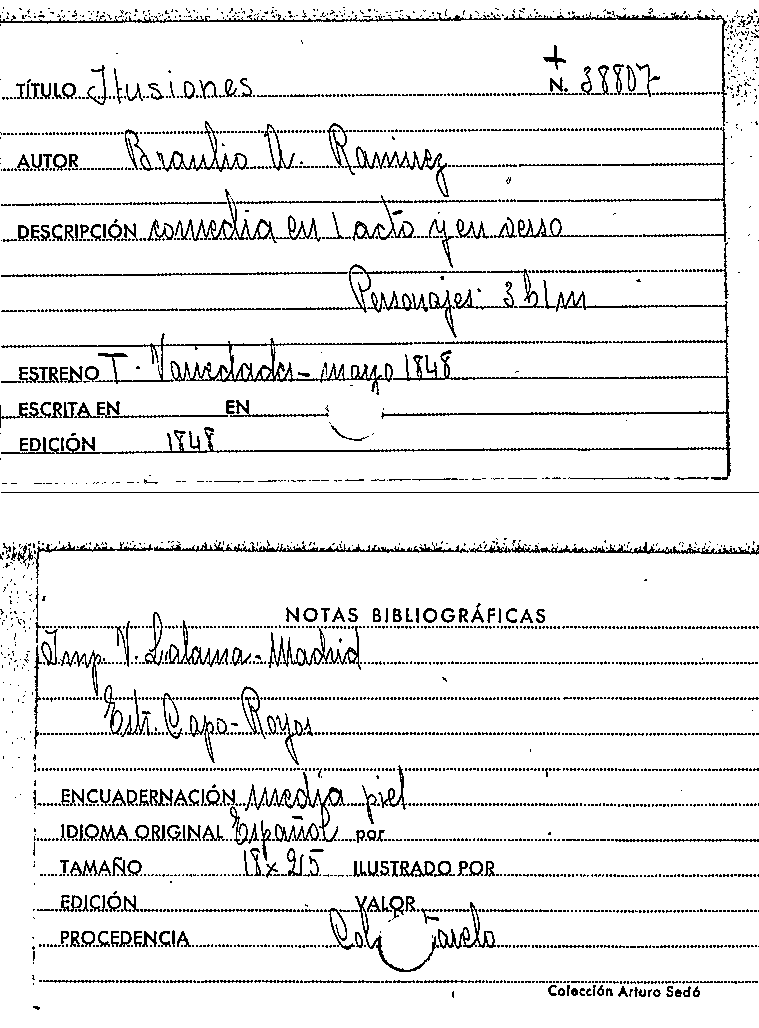 +
TÍTULO Ilusiones N. 38807
AUTOR Braulio A. Ramirez
DESCRIPCIÓN comedia en 1 acto y en verso
Personajes: 3 h 1 m
ESTRENO T. Variedades - mayo 1848
ESCRITA EN EN
EDICIÓN 1848
NOTAS BIBLIOGRÁFICAS
Imp. V. Lalama - Madrid
Estr. Capo - Royos
ENCUADERNACIÓN media piel
IDIOMA ORIGINAL Español por
TAMAÑO 18 x 215 ILUSTRADO POR
EDICIÓN VALOR
PROCEDENCIA
Colección Arturo Sedó